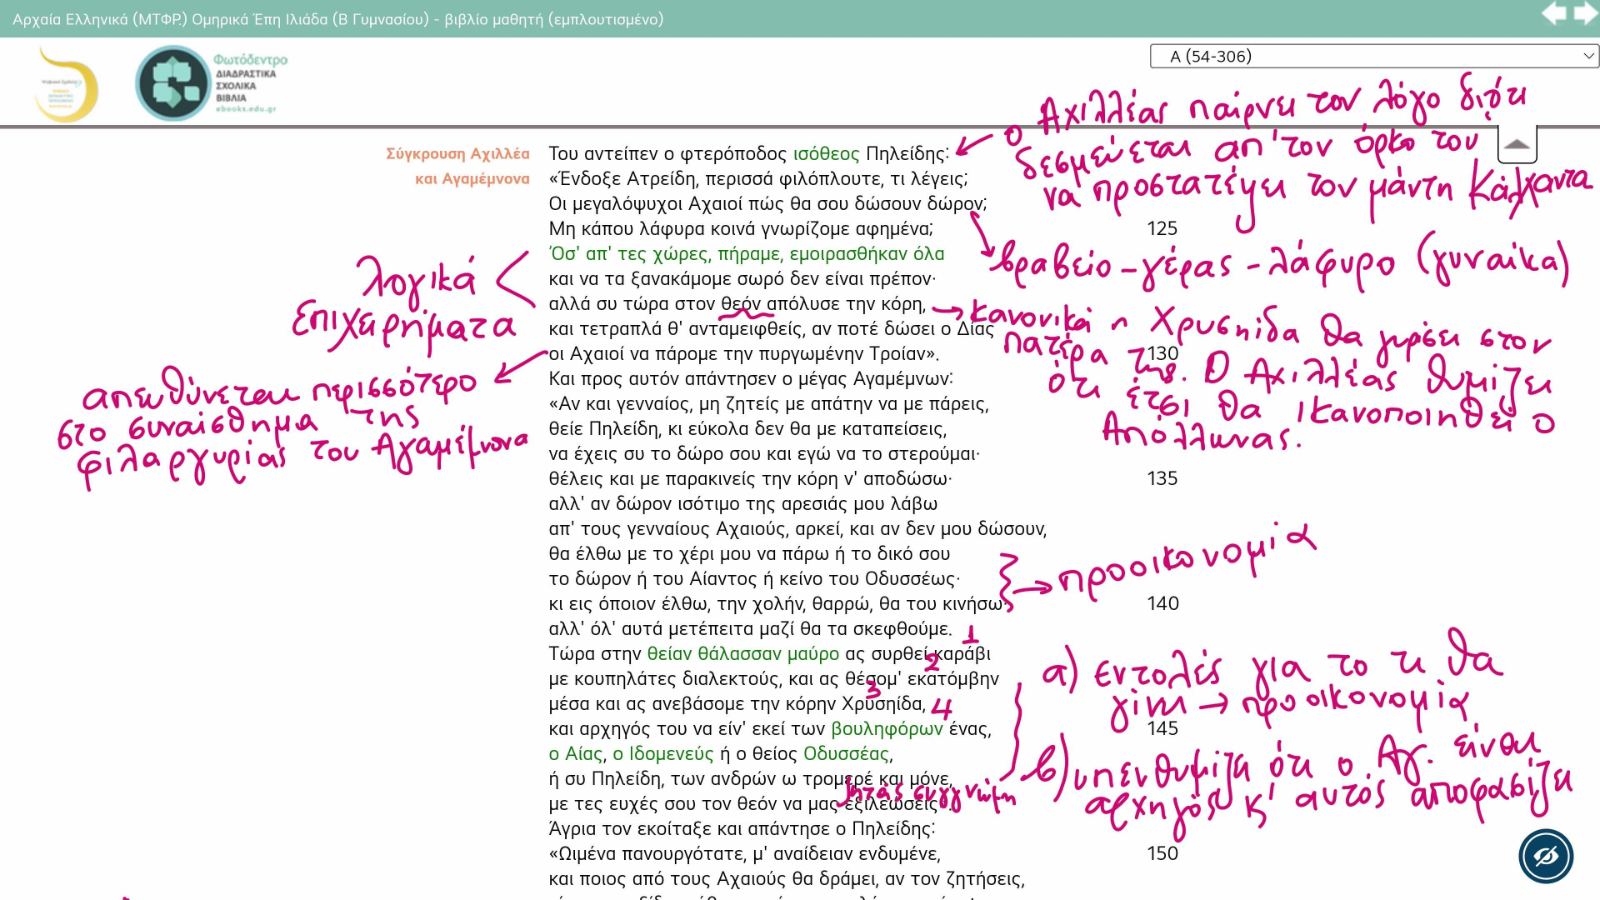 Αρχαία Ελληνικά (ΜΤΦΡ.) Ομηρικά Έπη Ιλιάδα (Β Γυμνασίου) - βιβλίο μαθητή (εμπλουτισμένο)
Φωτόδεντρο
ΔΙΑΔΡΑΣΤΙΚΑ
ΣΧΟΛΙΚΑ
ΒΙΒΛΙΑ
ebooks.edu.gr
Α (54-306)
ο Αχιλλέας παίρνει τον λόγο διότι
δεσμεύεται απ' τον όρκο του
να προστατέψει τον μάντη Κάλχαντα
Σύγκρουση Αχιλλέα
και Αγαμέμνονα
Του αντείπεν ο φτερόποδος ισόθεος Πηλείδης:
«Ένδοξε Ατρείδη, περισσά φιλόπλουτε, τι λέγεις;
Οι μεγαλόψυχοι Αχαιοί πώς θα σου δώσουν δώρον;
Μη κάπου λάφυρα κοινά γνωρίζομε αφημένα; 125
Όσ' απ' τες χώρες, πήραμε, εμοιρασθήκαν όλα
και να τα ξανακάμομε σωρό δεν είναι πρέπον·
αλλά συ τώρα στον θεόν απόλυσε την κόρη,
και τετραπλά θ' ανταμειφθείς, αν ποτέ δώσει ο Δίας
οι Αχαιοί να πάρομε την πυργωμένην Τροίαν». 130
Και προς αυτόν απάντησεν ο μέγας Αγαμέμνων:
«Αν και γενναίος, μη ζητείς με απάτην να με πάρεις,
θείε Πηλείδη, κι εύκολα δεν θα με καταπείσεις,
να έχεις συ το δώρο σου και εγώ να το στερούμαι·
θέλεις και με παρακινείς την κόρη ν' αποδώσω· 135
αλλ' αν δώρον ισότιμο της αρεσιάς μου λάβω
απ' τους γενναίους Αχαιούς, αρκεί, και αν δεν μου δώσουν,
θα έλθω με το χέρι μου να πάρω ή το δικό σου
το δώρον ή του Αίαντος ή κείνο του Οδυσσέως·
κι εις όποιον έλθω, την χολήν, θαρρώ, θα του κινήσω· 140
αλλ' όλ' αυτά μετέπειτα μαζί θα τα σκεφθούμε.
Τώρα στην θείαν θάλασσαν μαύρο ας συρθεί καράβι
με κουπηλάτες διαλεκτούς, και ας θέσομ' εκατόμβην
μέσα και ας ανεβάσομε την κόρην Χρυσηίδα,
και αρχηγός του να είν' εκεί των βουληφόρων ένας, 145
ο Αίας, ο Ιδομενεύς ή ο θείος Οδυσσέας,
ή συ Πηλείδη, των ανδρών ω τρομερέ και μόνε,
με τες ευχές σου τον θεόν να μας εξιλεώσεις».
Άγρια τον εκοίταξε και απάντησε ο Πηλείδης:
«Ωιμένα πανουργότατε, μ' αναίδειαν ενδυμένε, 150
και ποιος από τους Αχαιούς θα δράμει, αν τον ζητήσεις,
λογικά
επιχειρήματα
απευθύνεται περισσότερο
στο συναίσθημα της
φιλαργυρίας του Αγαμέμνονα
βραβείο - γέρας - λάφυρο (γυναίκα)
κανονικά η Χρυσηίδα θα γυρίσει στον
πατέρα της. Ο Αχιλλέας θυμίζει
ότι έτσι θα ικανοποιηθεί ο
Απόλλωνας.
προοικονομία
1
2
3
4
α) εντολές για το τι θα
γίνει → προοικονομία
β) υπενθυμίζει ότι ο Αγ. είναι
αρχηγός κ' αυτός αποφασίζει
ζητάς συγγνώμη